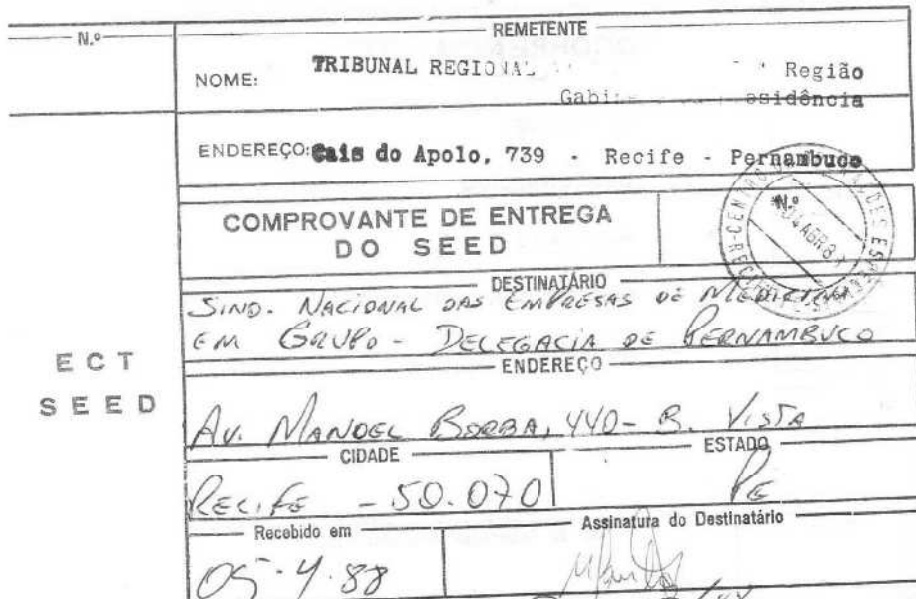 N.º
REMETENTE
NOME: TRIBUNAL REGIONAL Região
ENDEREÇO: Cais do Apolo, 739 - Recife - Pernambuco
N.º
COMPROVANTE DE ENTREGA
DO SEED
DESTINATÁRIO
SIND. NACIONAL DAS EMPRESAS DE MEDICINA
EM GRUPO - DELEGACIA DE PERNAMBUCO
ECT
SEED
ENDEREÇO
AV. MANOEL BORBA, 440 - B. VISTA
CIDADE
ESTADO
RECIFE - 50.070
PE
Recebido em
Assinatura do Destinatário
05.4.88